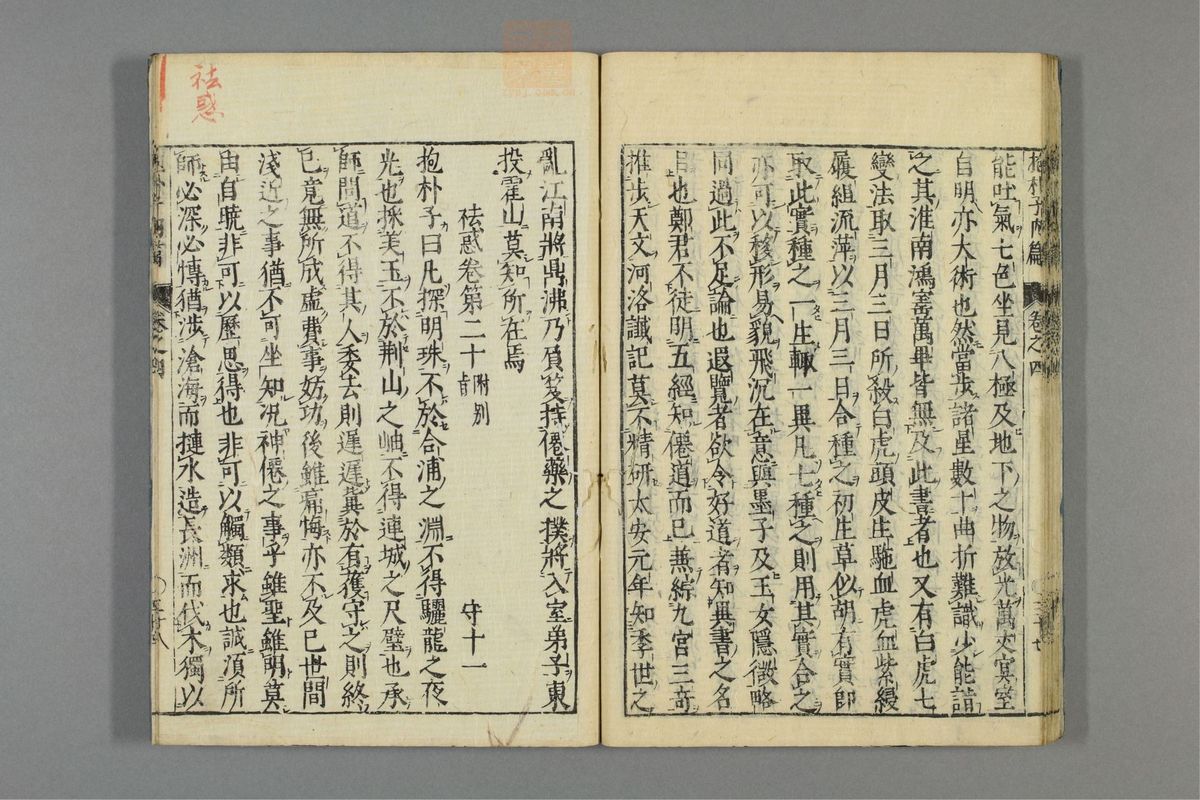 抱朴子內篇 卷之四
能吐氣七色坐見八極及地下之物放光萬丈冥室
自明亦大術也然當步諸星數十曲折難識少能譜
之其淮南鴻寶萬畢皆無及此書者也又有白虎七
變法取三月三日所殺白虎頭皮生駞血虎血紫綬
履組流萍以三月三日合種之初生草似胡有實即
取此實種之一生輙一異凡七種之則用其實合之
亦可以移形易貌飛沉在意與墨子及玉女隱微略
同過此不足論也遐覽者欲令好道者知異書之名
目也鄭君不徒明五經知僊道而已兼綜九宮三奇
推步天文河洛讖記莫不精研太安元年知季世之
亂江南將鼎沸乃負笈持僊藥之撲將入室弟子東
投霍山莫知所在焉
祛惑卷第二十 附別旨 守十一
抱朴子曰凡探明珠不於合浦之淵不得驪龍之夜
光也採美玉不於荆山之岫不得連城之尺璧也承
師問道不得其人委去則遲遲冀於有獲守之則終
已竟無所成虛費事妨功後雖痛悔亦不及已世間
淺近之事猶不可坐知况神僊之事乎雖聖雖明莫
由自曉非可以歷思得也非可以觸類求也誠湏所
師必深必博猶涉滄海而挹水造長洲而伐木獨以
祛惑